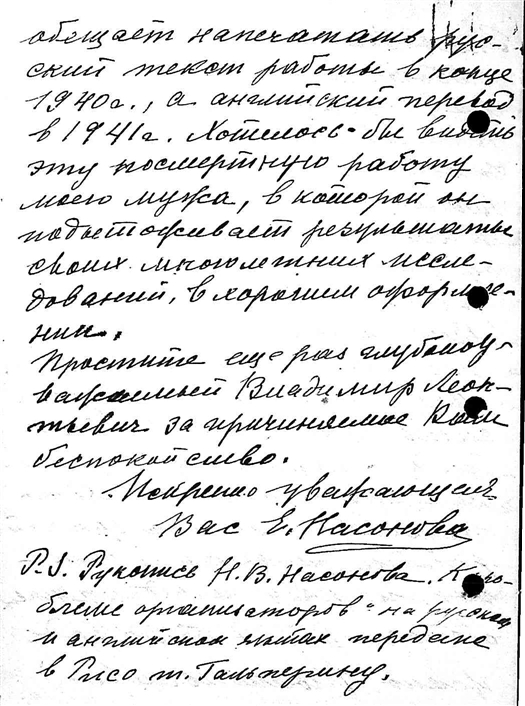 обещает напечатать рус-
ский текст работы в конце
1940г., а английский перевод
в 1941г. Хотелось-бы видеть
эту посмертную работу
моего мужа, в которой он
подытоживает результаты
своих многолетних иссле-
дований, в хорошем оформле-
нии.
Простите еще раз глубокоу-
важаемый Владимир Леон-
тьевич за причиняемое Вам
беспокойство.
Искренно уважающая
Вас Е. Насонова
P.S. Рукопись Н.В. Насонова „К про-
блеме организаторов" на русском
и английском языках передана
в Рисо т. Гальперину.